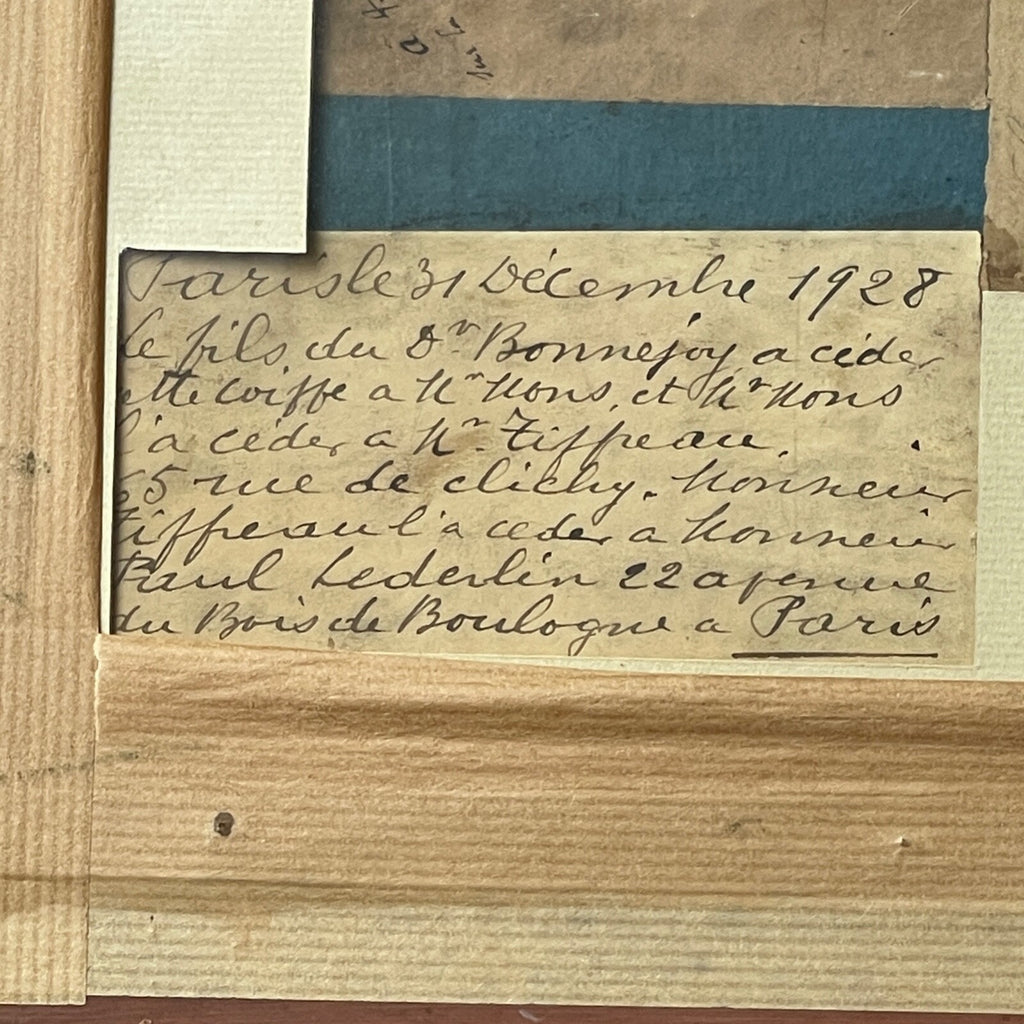 Paris le 31 Décembre 1928
Le fils du Dr Bonnejoy a céder
cette coiffe a Mr Mons, et Mr Mons
l'a céder a Mr Tiffreau,
65 rue de clichy. Monsieur
Tiffreau l'a céder a Monsieur
Paul Lederlin 22 avenue
du Bois de Boulogne a Paris